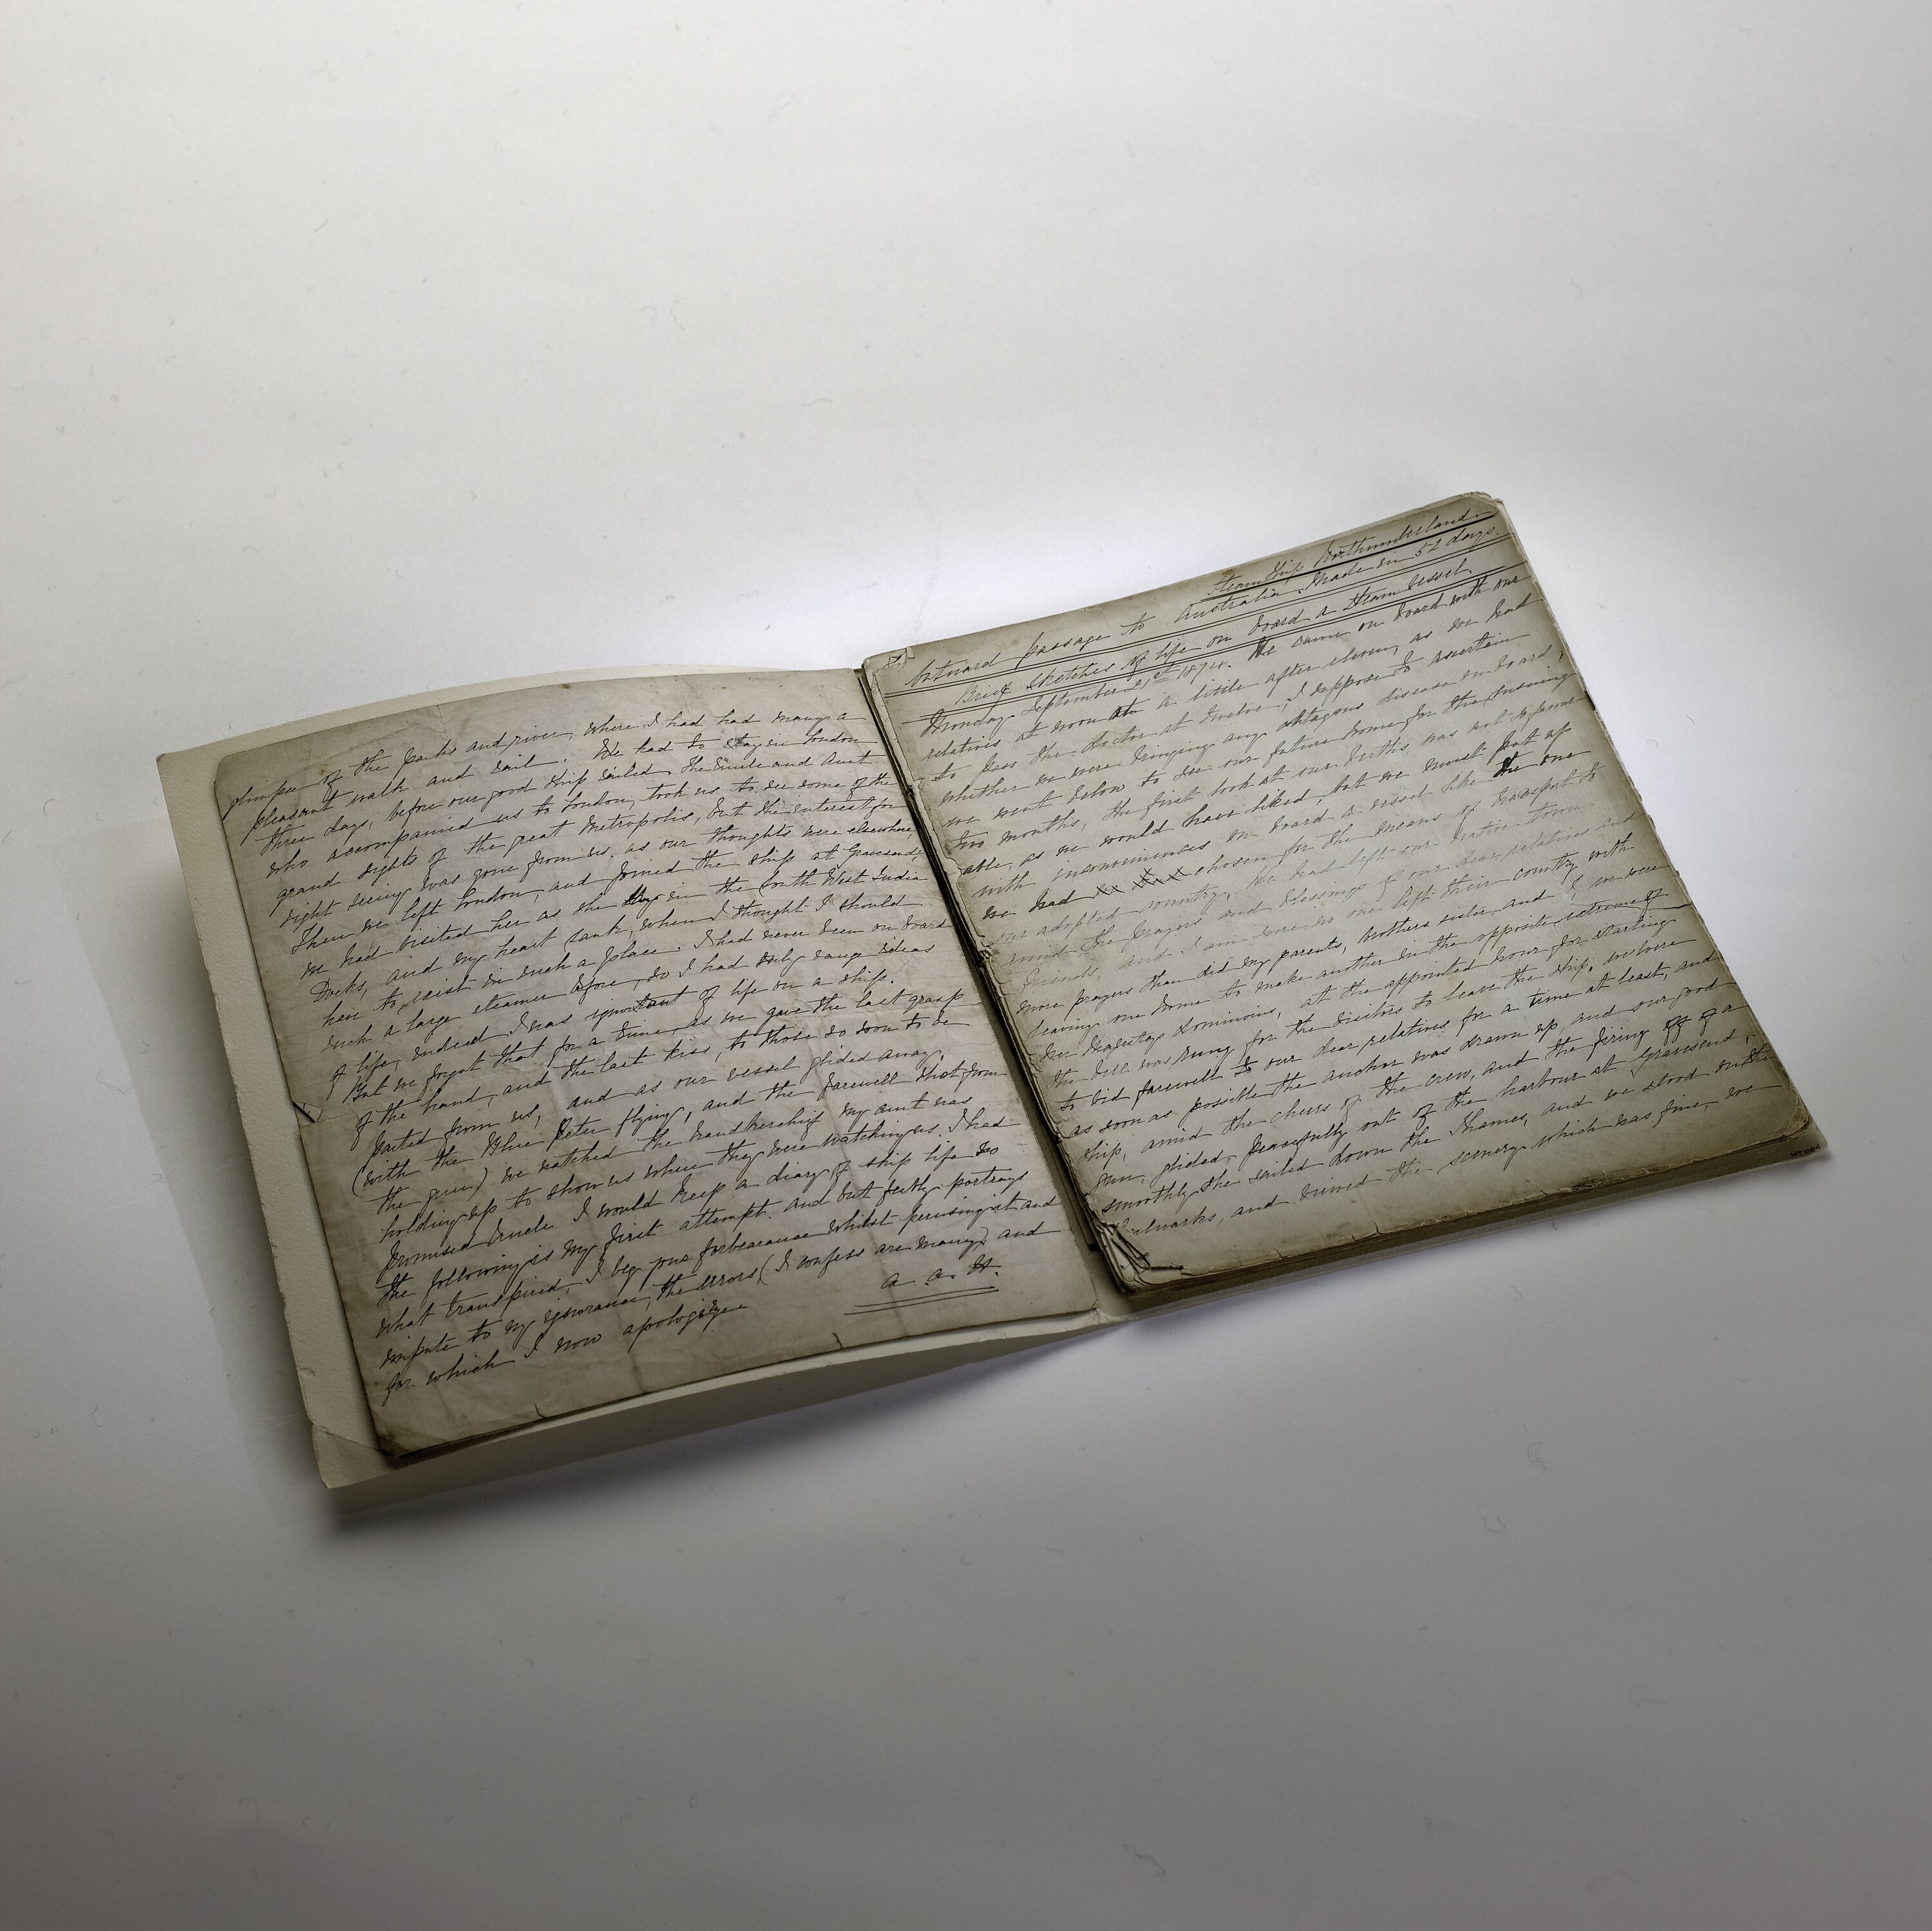 glimpse of the parks and river, where I had had many a
pleasant walk and sail. We had to stay in London
three days, before our good ship sailed. The Uncle and Aunt
who accompanied us to London, took us to see some of the
grand sights of the great Metropolis, but the interest for
sight seeing was gone from us, as our thoughts were elsewhere,
Then we left London, and joined the ship at Gravesend,
we had visited her as she lay in the South West India
Docks, and my heart sank, when I thought I should
have to exist in such a place. I had never been on board
such a large steamer before, so I had only vague ideas
of life, indeed I was ignorant of life on a ship.
But we forgot that, for a time, as we gave the last grasp
of the hand, and the last kiss, to those so soon to be
parted from us, and as our vessel glided away,
(with the Blue Peter flying, and the farewell shot from
the gun,) we watched the handkerchief my aunt was
holding up to show us where they were watching us. I had
promised Uncle I would keep a diary of ship life so
the following is my first attempt. and but feebly portrays
what transpired, I beg your forbearance whilst perusing it and
impute to my ignorance, the errors (I confess are many) and
for which I now apologize
A. A. H.
Steam Ship Northumberland.
Outward passage to Australia. Made in 52 days.
Brief sketches of life on board a Steam Vessel.
Monday September 21st 1874. We came on board with our
relatives at noon a little after eleven, as we had
to pass the doctor at twelve, I suppose to ascertain
whether we were bringing any contagious disease on board,
we went below to see our future home for the ensuing
two months, the first look at our births, was not so favour
able, as we would have liked, but we must put up
with inconveniences on board a vessel like the one
we had chosen for the means of transport to
our adopted country. We had left our native town
amid the prayers and blessings of our dear relatives and
friends, and I am sure no one left their country with
more prayers than did my parents, brothers sister, and I, we were
leaving one home to make another in the opposite extreme of
her Majestys dominions, at the appointed hour for starting
the bell was rung for the visitors to leave the ship, we were
to bid farewell to our dear relatives for a time at least, and
as soon as possible the anchor was drawn up, and our good
ship, amid the cheers of the crew, and the firing off of a
gun, glided peacefully out of the harbour at Gravesend,
smoothly she sailed down the Thames, and we stood on the
bulwarks, and viewed the scenery which was fine, we